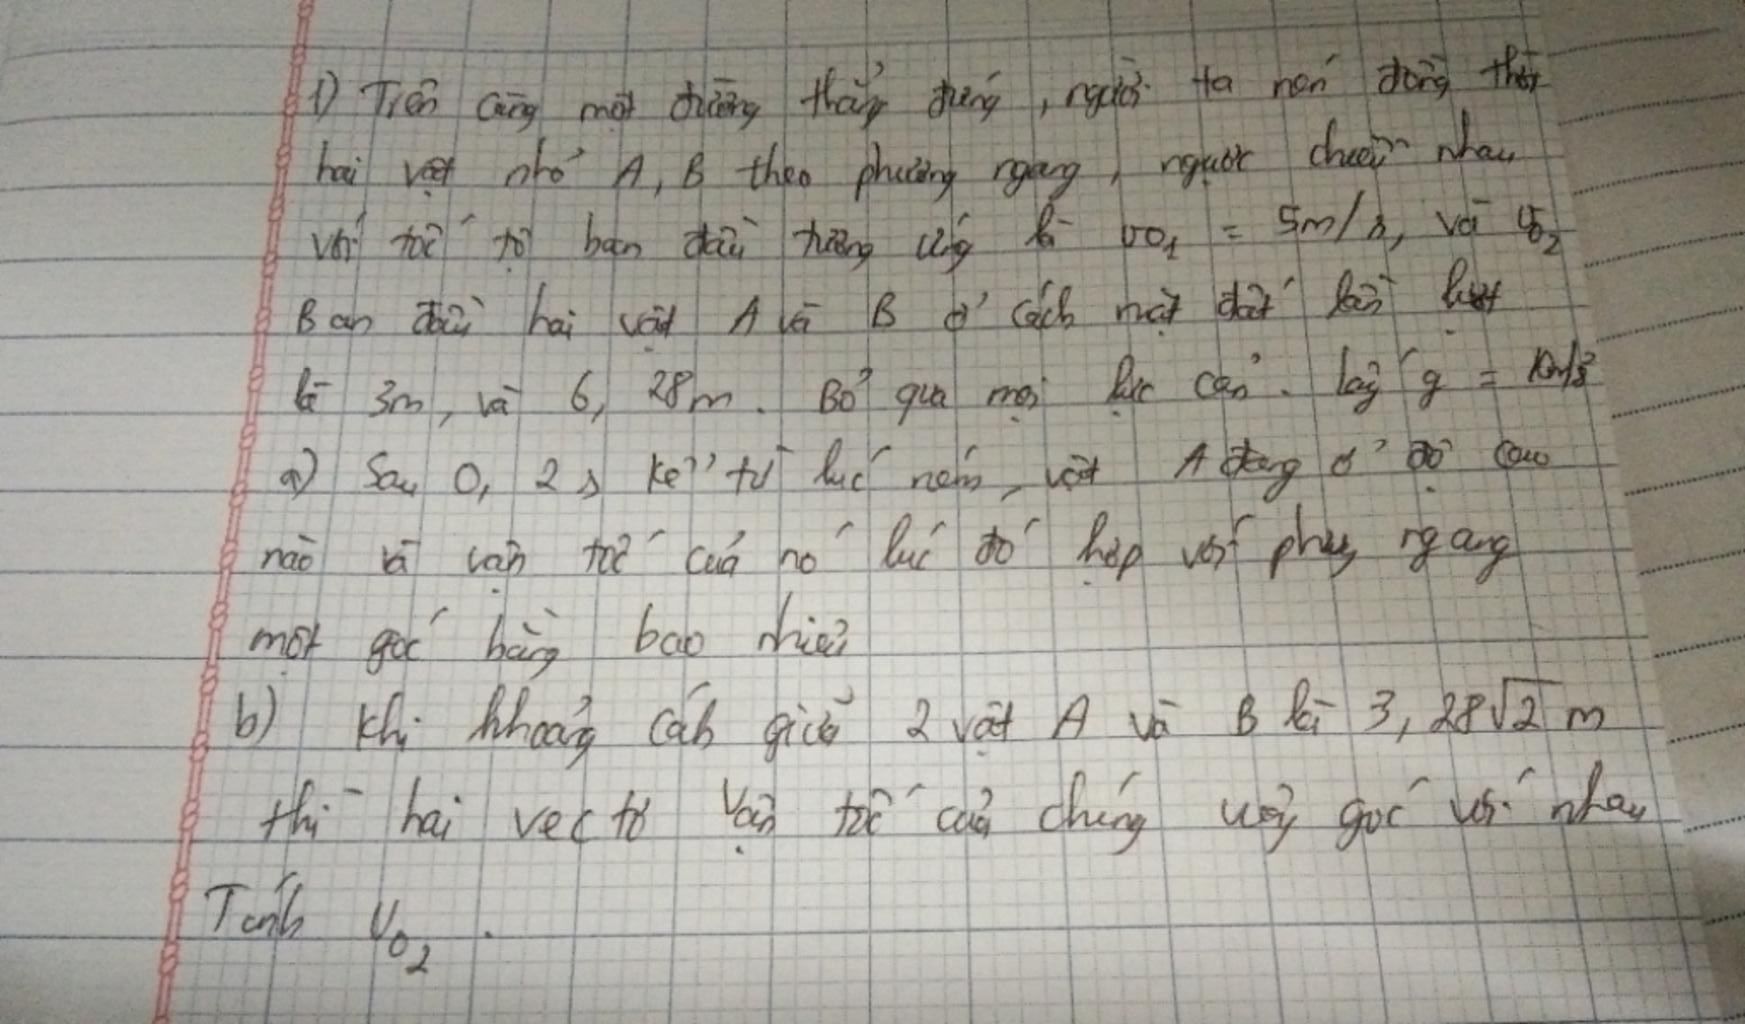 1) Trên cùng một đường thẳng đứng, người ta ném đồng thời
hai vật nhỏ A, B theo phương ngang, ngược chiều nhau
với tốc độ ban đầu tương ứng là v01 = 5m/s, và v02
Ban đầu hai vật A và B ở cách mặt đất lần lượt
là 3m, và 6, 28m. Bỏ qua mọi lực cản. lấy g = 10m/s²
a) Sau 0, 2 s kể từ lúc ném, vật A đang ở độ cao
nào và vận tốc của nó lúc đó hợp với phương ngang
một góc bằng bao nhiêu
b) Khi khoảng cách giữa 2 vật A và B là 3, 28√2 m
thì hai vec tơ vận tốc của chúng vuông góc với nhau
Tính v02.